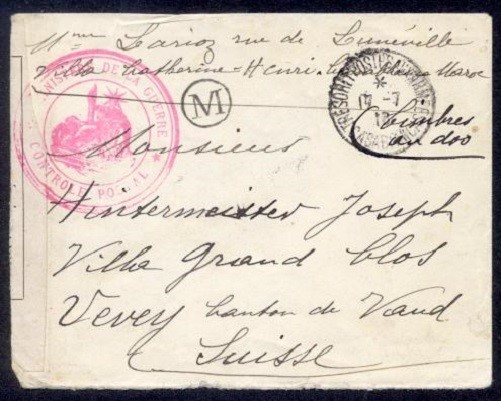 Mme Larioz rue de Lunéville
Villa Catherine-Henri Maroc
MINISTÈRE DE LA GUERRE
CONTROLE POSTAL
M
TRESOR ET POSTES
17 -7
CASABLANCA
Timbres
au dos
Monsieur
Hintermeister Joseph
Villa Grand Clos
Vevey Canton de Vaud
Suisse